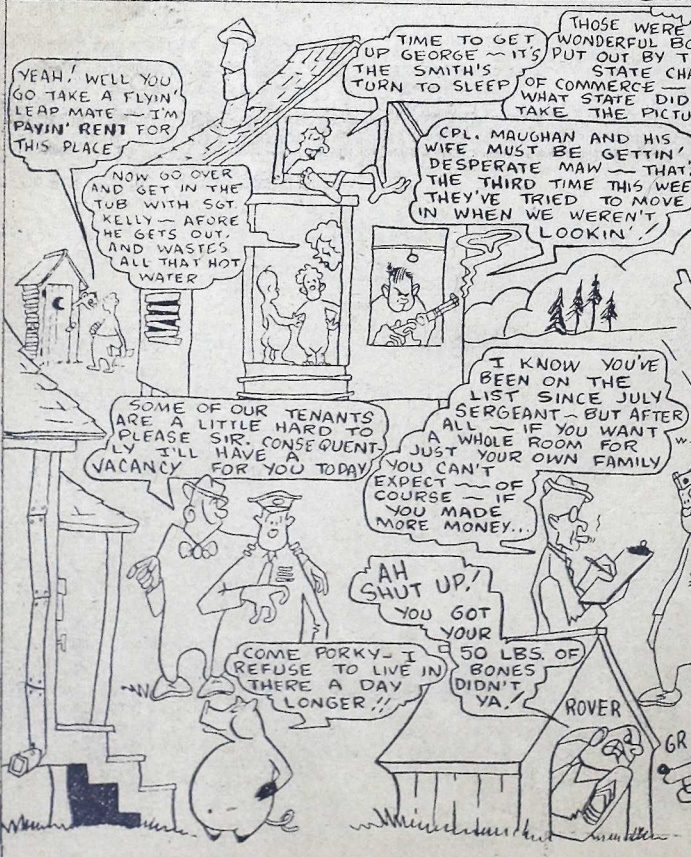 YEAH! WELL YOU
GO TAKE A FLYIN'
LEAP MATE — I'M
PAYIN' RENT FOR
THIS PLACE
TIME TO GET
UP GEORGE — IT'S
THE SMITH'S
TURN TO SLEEP
THOSE WERE
WONDERFUL
PUT OUT BY
STATE
OF COMMERCE —
WHAT STATE DID
TAKE THE
NOW GO OVER
AND GET IN THE
TUB WITH SGT.
KELLY — AFORE
HE GETS OUT.
AND WASTES
ALL THAT HOT
WATER
CPL. MAUGHAN AND HIS
WIFE MUST BE GETTIN'
DESPERATE MAW — THAT'S
THE THIRD TIME THIS WEEK
THEY'VE TRIED TO MOVE
IN WHEN WE WEREN'T
LOOKIN'!!
SOME OF OUR TENANTS
ARE A LITTLE HARD TO
PLEASE SIR. CONSEQUENT-
LY I'LL HAVE A
VACANCY FOR YOU TODAY
I KNOW YOU'VE
BEEN ON THE
LIST SINCE JULY
SERGEANT — BUT AFTER
ALL — IF YOU WANT
A WHOLE ROOM FOR
JUST YOUR OWN FAMILY
YOU CAN'T
EXPECT — OF
COURSE — IF
YOU MADE
MORE MONEY...
AH
SHUT UP!!
YOU GOT
YOUR
50 LBS. OF
BONES
DIDN'T
YA!
COME PORKY — I
REFUSE TO LIVE IN
THERE A DAY
LONGER!!
ROVER
GR